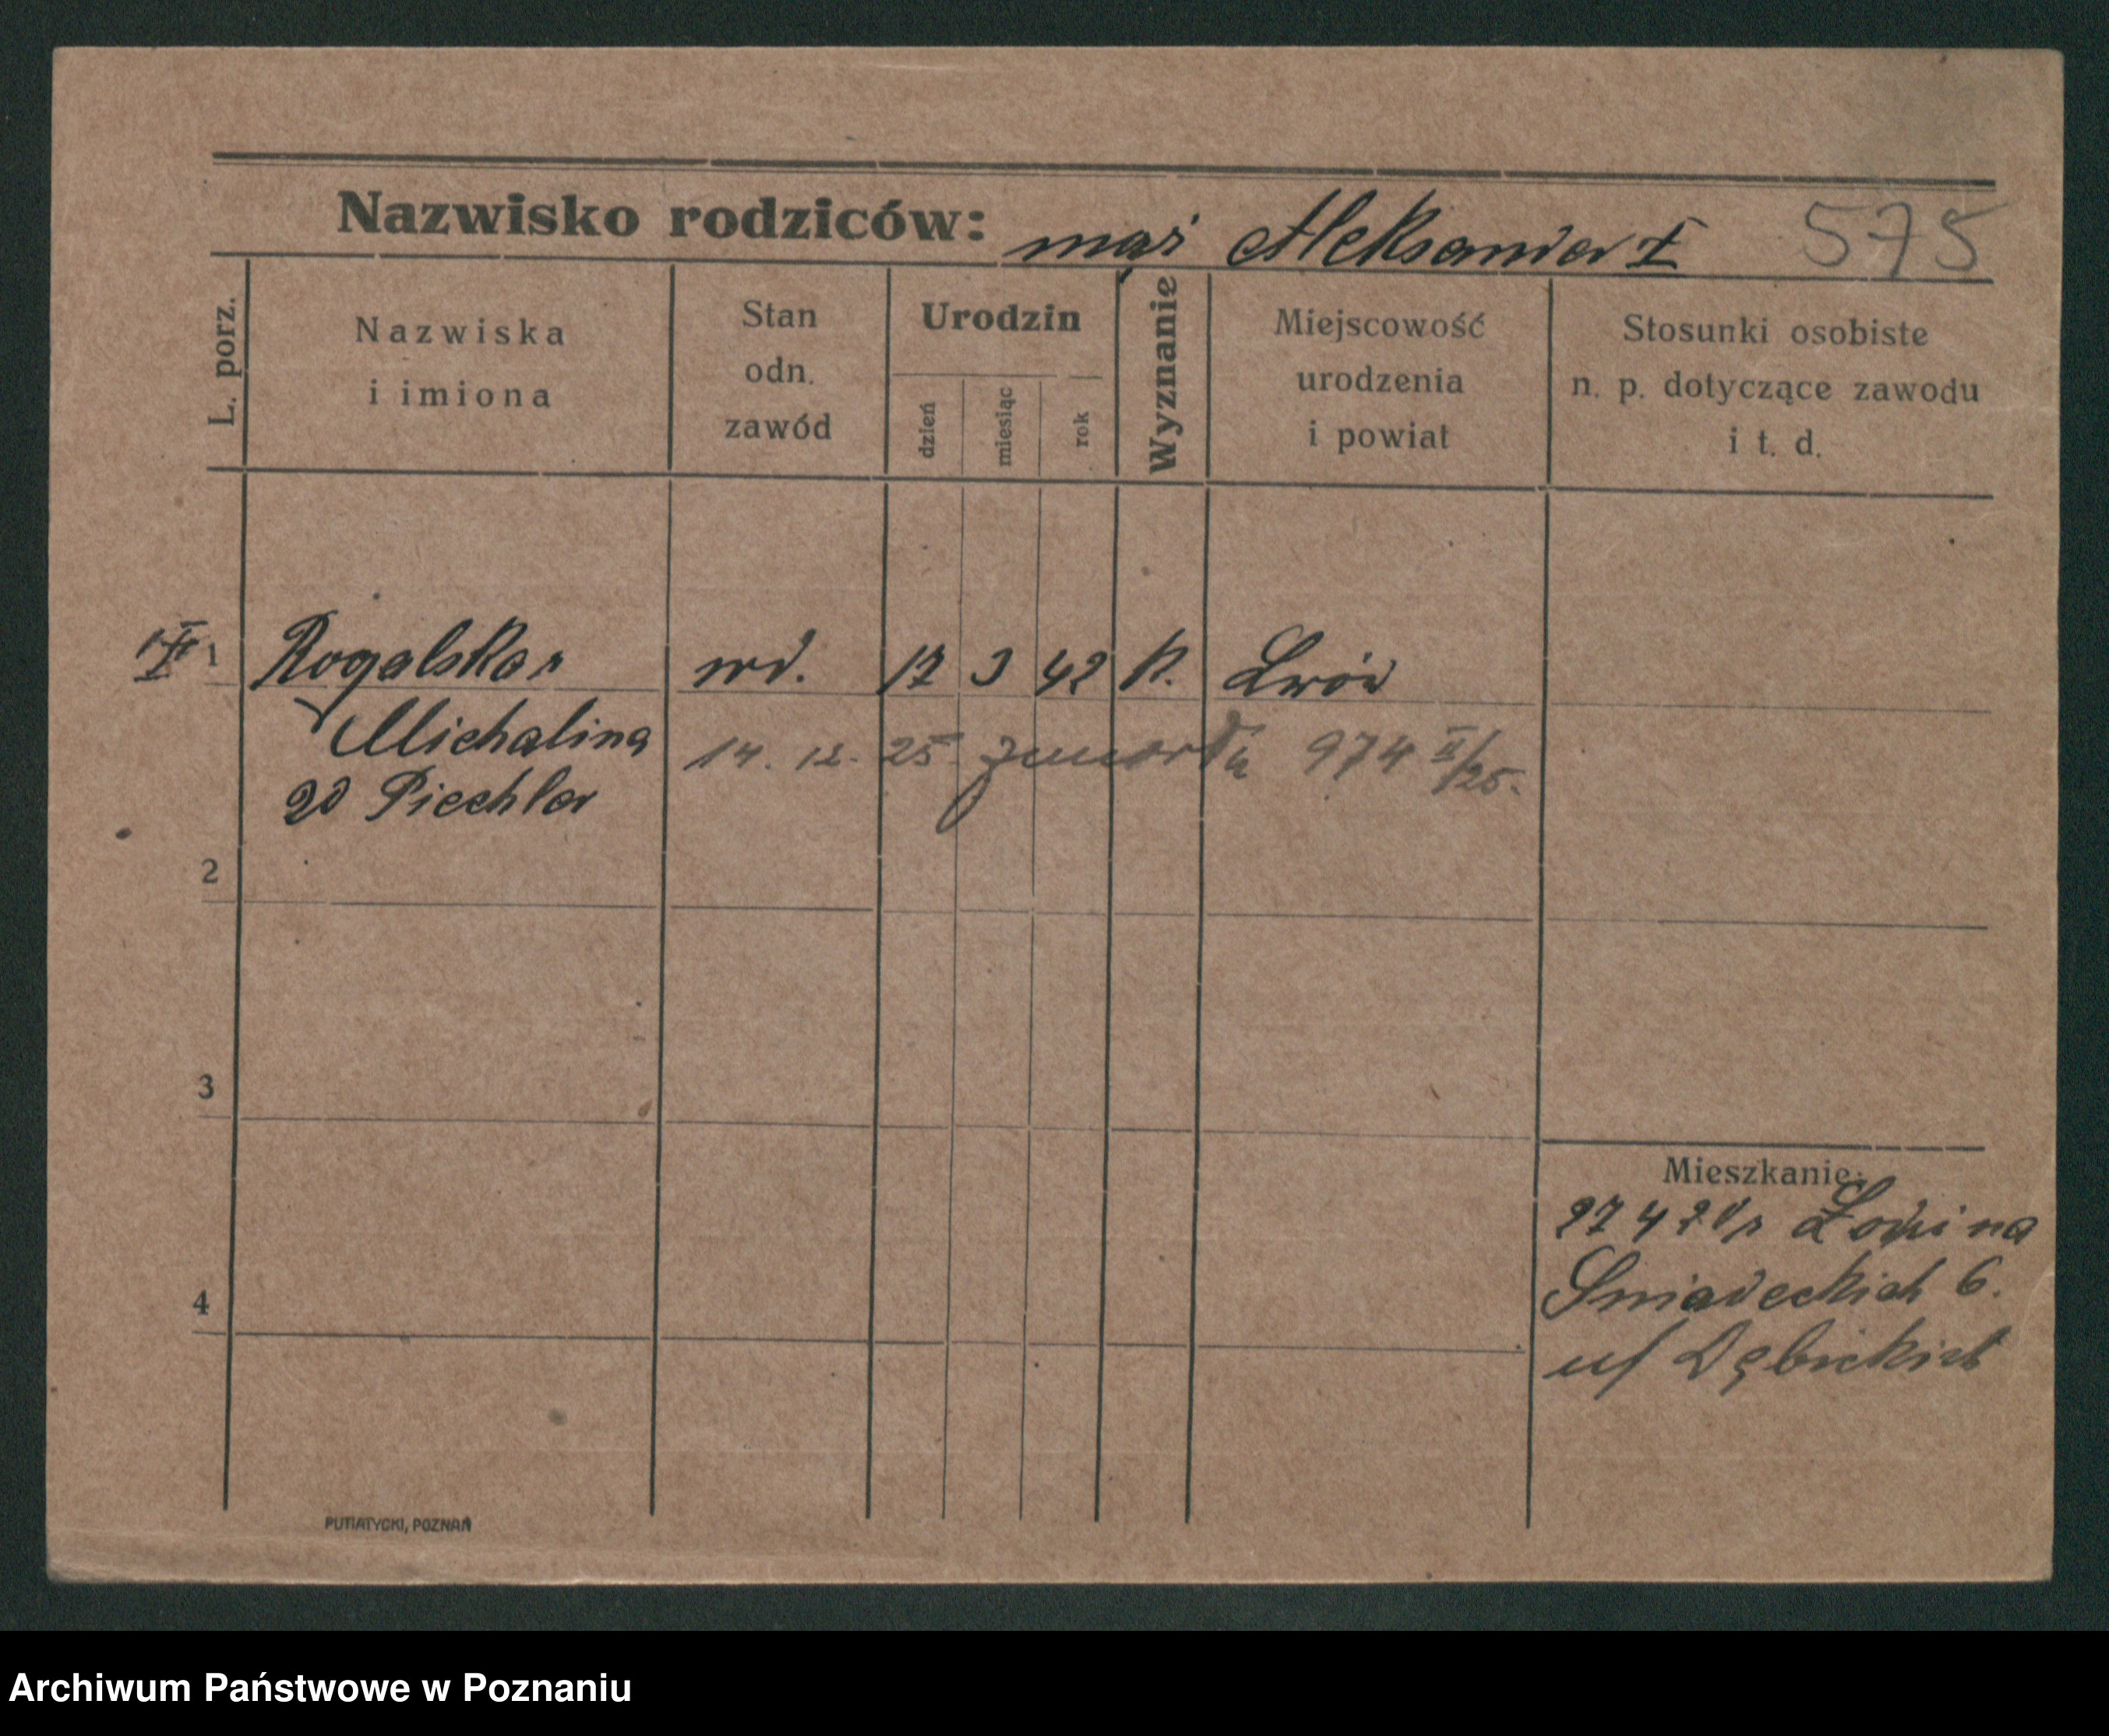 Nazwisko rodziców: mąż Aleksander † 575
L. porz.
Nazwiska
i imiona
Stan
odn.
zawód
Urodzin
dzień
miesiąc
rok
Wyznanie
Miejscowość
urodzenia
i powiat
Stosunki osobiste
n. p. dotyczące zawodu
i t. d.
1 Rogalska wd. 17 3 42 K. Lwów
Michalina
Piechler
14. 12. 25. zmarła 974 II/25.
2
3
4
Mieszkanie:
Śniadeckich 6.
u/ Dębickich
PUTIATYCKI, POZNAŃ
Archiwum Państwowe w Poznaniu